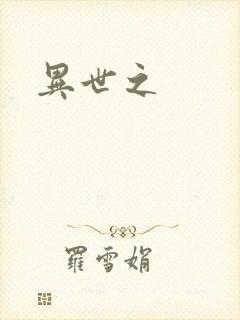 異世之
羅雪娟